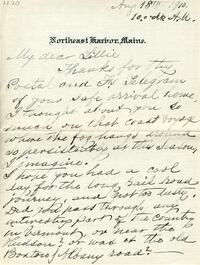 1120
Aug 18th 1910.
10. o'clk A.M.
Northeast Harbor, Maine.
My dear Lillie
Thanks for thy
Postal and thy Telegram
of your safe arrival home
I thought about you so
much on that Coast Voyage
where the fog hangs around
so persistently at this season,
I imagine!
I hope you had a cool
day for the long rail road
journey, and not too dusty.
Did you pass through any
interesting part of the Country
in Vermont, or near the
Hudson? or was it the old
Boston & Albany road?